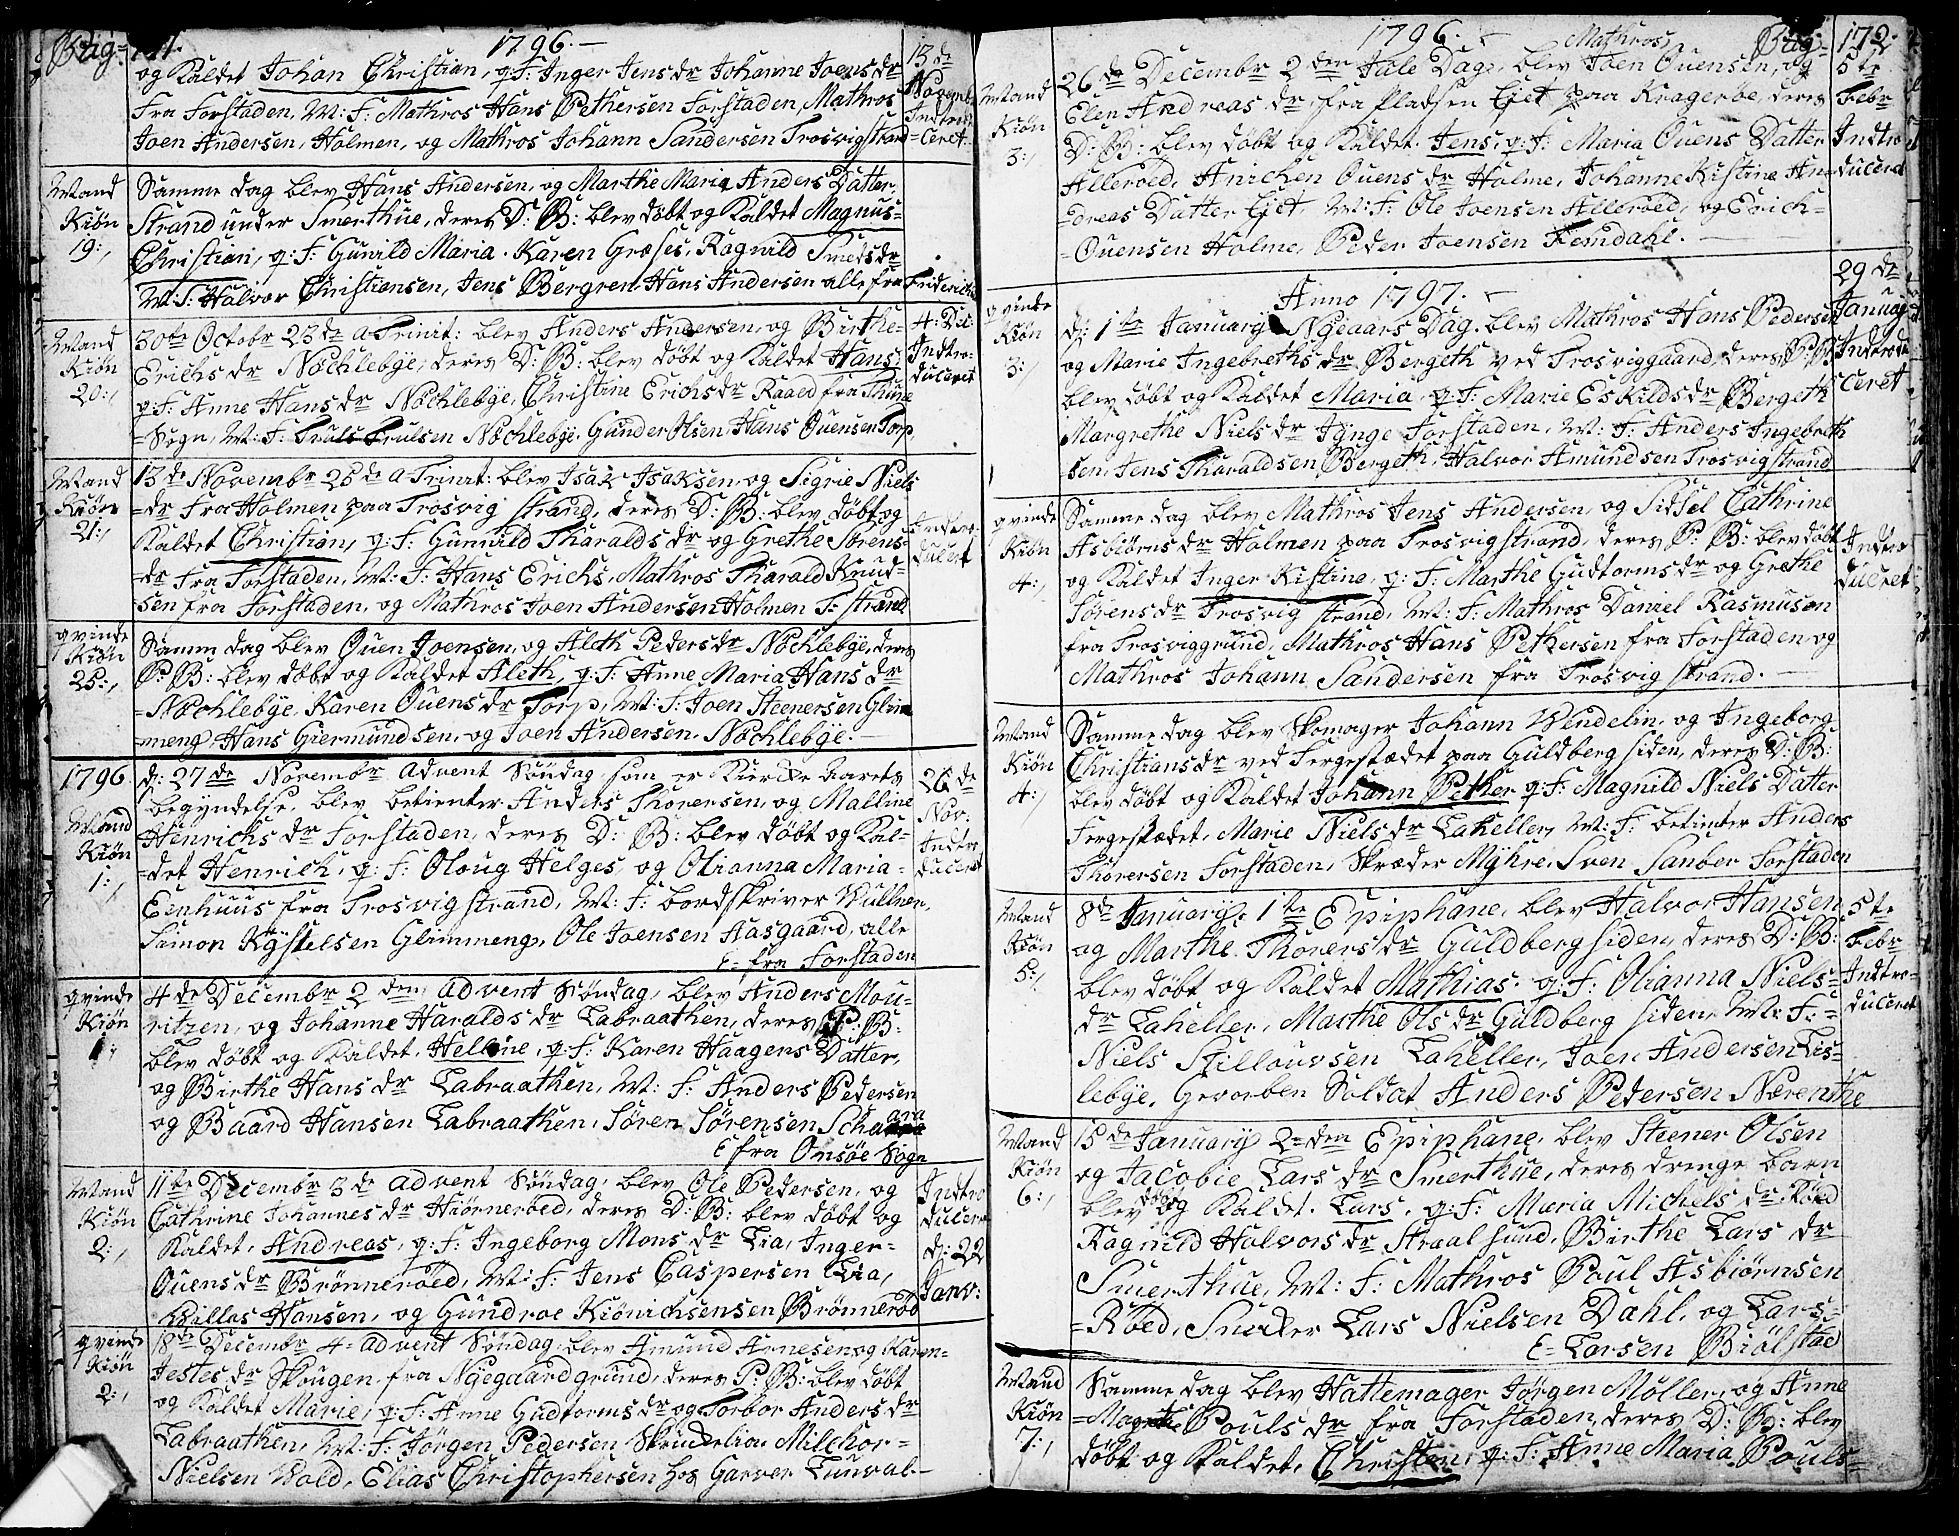 Pag: 171.
1796.
og Kaldet Johan Christian, q: F: Inger Jens dr Johanne Joens dr
Fra Forstaden, M: F: Mathros Hans Pethersen Forstaden, Mathros
Joen Andersen, Holmen, og Mathros Johann Sandersen Trosvigstrand
13 de
Novembr
Indtrodu
=Ceret:
Mand
Kiøn
19:,
Samme dag blev Hans Andersen, og Marthe Maria Anders Datter,
Strand under Smerthue, deres D: B: blev døbt og Kaldet Magnus=
Christian, q: F: Gunild Maria. Karen Græses, Ragnild Smeds dr
M: F: Halvor Christiansen, Jens Bergren, Hans Andersen alle fra Friderichs
Mand
Kiøn
20:,
30te Octobr 23 de a Trinit: blev Anders Andersen, og Birthe=
Erichs dr Nochlebÿe, deres D: B: blev døbt og Kaldet Hans,
q: F: Anne Hans dr Nochlebÿe, Christine Erichs dr Raaed fra Thune
=Sogn, M: F: Truls Trulsen Nochlebÿe, Gunder Olsen, Hans Ouensen Torp
4: Dec:
Indtro-
duceret
Mand
Kiøn
21:,
13 de Novembr 25 de a Trinit: blev Isak Isaksen, og Sigrie Niels
=dr fra Holmen paa Trosvig strand, deres D: B: blev døbt og
Kaldet Christian, q: F: Gunnild Tharalds dr og Grethe Sørens=
=dr fra Forstaden, M: F: Hans Erichs, Mathros Tharald Knud=
sen fra Forstaden, og Mathros Joen Andersen Holmen T: strand
Indtro-
ducert
qvinde
Kiøn
25:,
Samm dag blev Ouen Joensen, og Aleth Peders dr Nochlebÿe, deres
P: B: blev døbt og Kaldet Aleth, q: F: Anne Maria Hans dr
=Nochlebÿe, Karen Ouens dr Torp, M: F: Joen Steenersen Glim
=meng, Hans Giermundsen, og Joen Andersen, Nochlebÿe.
1796
Mand
Kiøn
1:,
d: 27 de Novembr Advent Søndag som er Kircke Aarets
begyndelse, blev betienter Anders Thorersen, og Malline
Henrichs dr Forstaden, deres D: B: blev døbt og Kal=
=det Henrich, q: F: Oloug Helges, og Olianna Maria=
Eenhuus fra Trosvig strand, M: F: bordskriver Wullner,
Simon Kÿstelsen Glimmeng, Ole Joensen Aasgaard, alle
E= fra Forstaden
26 de
Nov:
Indtro
duceret
qvinde
Kiøn
1:,
4 de Decembr 2 den Advent Søndag, blev Anders Mou=
ritzen, og Johanne Haralds dr Labraathen, deres P: B:
blev døbt og Kaldet, Helline, q: F: Karen Haagens Datter,
og Birthe Hans dr Labraathen, M: F: Anders Pedersen
og Baard Hansen Labraathen, Søren Sørensen Schaara
E fra Onsøe Sogn
Mand
Kiøn
2:,
11te Decembr 3 de Advent Søndag, blev Ole Pedersen, og
Cathrine Johannes dr Hiørnerøed, deres D: B: blev døbt og
Kaldet, Andreas, q: F: Ingeborg Mons dr Lia, Inger=
Ouens dr Brønnerøed, M: F: Jens Caspersen Lia,
Hillas Hansen, og Gundroe Kiønichsensen Brønnerød
Indtro
ducere
d: 22
Janv:
qvinde
Kiøn
2:,
18 de Decembr 4= Advent Søndag, blev Amund Arnesen, og Karen=
Jestes dr Skougen fra Nÿegaard grund, deres P: B: blev døbt
og Kaldet Marie, q: F: Anne Gudtorms dr og Torbor Anders dr
Labraathen, M: F: Jørgen Pedersen Skrindelia, Milchor=
Nielsen Wold, Elias Christophersen hos Garver Lunval.
1796.
Pag: 172.
Mand
Kiøn
3:,
Mathros
26 de Decembr 2 den Jule Dag, blev Joen Ouensen, og
Elen Andreas dr, fra Pladsen Eiet paa Kragerøe, deres
D: B: blev døbt og Kaldet. Jens, q: F: Maria Ouens Datter
Allerøed, Anichen Ouens dr Holme, Johanne Kistine An=
=dreas Datter Eiet, M: F: Ole Joensen Allerøed, og Erich=
=Ouensen Holme, Peder Joensen Femdahl.
5te
Febr
Indtro
duceret
Anno 1797.
qvinde
Kiøn
3:,
d: 1te Januarÿ Nÿeaars Dag. blev Mathros Hans Pedersen
og Marie Ingebreths dr Bergeth ved Trosviggaard, deres P: B:
blev døbt og Kaldet Maria, q: F: Marie Eskilds dr Bergeth
Margrethe Niels dr Tÿnge Forstaden, M: F: Anders Ingebreth
sen, Jens Tharaldsen Bergeth, Halvor Amundsen Trosvigstrand
29 de
Januar
Indtrodu
ceret
qvinde
Kiøn
4:,
Samme dag blev Mathros Jens Andersen, og Sidsel Cathrine
Asbiørns dr Holmen paa Trosvigstrand, deres P: B: blev døbt
og Kaldet Inger Kistine, q: F: Marthe Gudtorms dr og Grethe
Sørens dr Trosvig strand, M: F: Mathros Daniel Rasmusen
fra Trosviggrund, Mathros Hans Pethersen fra Forstaden, og
Mathros Johann Sandersen fra Trosvig strand.
Indtro
duceret
Mand
Kiøn
4:,
Samme dag blev Skomager Johann Wendelin, og Ingeborg
Christians dr ved Fergestædet paa Guldberg siden, deres D: B:
blev døbt og Kaldet Johann Pether q: F: Magnild Niels Datter
Fergestædet, Marie Niels dr Laheller, M: F: betienter Anders
Thorersen Forstaden, Skræder Mÿhre, Sven Sanber Forstaden
Mand
Kiøn
5:,
8 de Januarÿ. 1te Epiphane, blev Halvor Hansen
og Marthe Thorers dr Guldberg siden, deres D: B:
blev døbt og Kaldet Mathias. q: F: Olianna Niels=
dr Laheller, Marthe Ols dr Guldberg siden, M: F:=
Niels Stillouvsen Laheller, Joen Andersen Lis=
lebÿe, Gevorben Soldat Anders Pedersen Nærenthe
5te
Febr
Indtro-
duceret
Mand
Kiøn
6:,
15 de Januarÿ 2= den Epiphane, blev Steener Olsen
og Jacobie Lars dr Smerthue, deres drenge barn
blev døbt og Kaldet. Lars, q: F: Maria Michels dr Røed
Ragnild Halvors dr Straalsund, Birthe Lars dr
Smerthue, M: F: Mathros Poul Asbiørnsen
=Røed, Snecker Lars Nielsen Dahl, og Lars=
E= Larsen Biølstad
Mand
Kiøn
7:,
Samme dag blev Hattemager Jørgen Møller, og Anne
=Magrethe Pouls dr fra Forstaden, deres D: B: blev
døbt og Kaldet, Christen, q: F: Anne Maria Pouls=